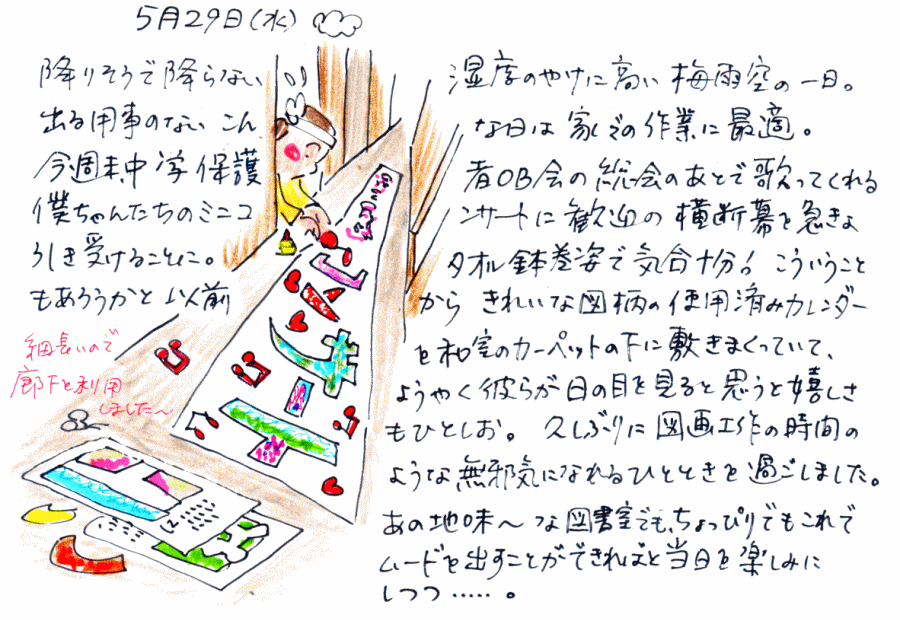 5月29日(水)
降りそうで降らない 湿度のやけに高い 梅雨空の一日。
出る用事のない こん な日は 家での作業に最適。
今週末、中学保護 者OB会の総会のあとで歌ってくれる
僕ちゃんたちのミニコ ンサートに歓迎の横断幕を急きょ
引き受けることに。 タオル鉢巻姿で気合十分! こういうこと
もあろうかと以前 から きれいな図柄の使用済みカレンダー
を和室のカーペットの下に敷きまくっていて、
ようやく彼らが日の目を見ると思うと嬉しさ
もひとしお。 久しぶりに図画工作の時間の
ような無邪気になれるひとときを過ごしました。
あの地味〜な図書室でも、ちょっぴりでもこれで
ムードを出すことができればと当日を楽しみに
しつつ・・・・・。
細長いので
廊下を利用
しました〜